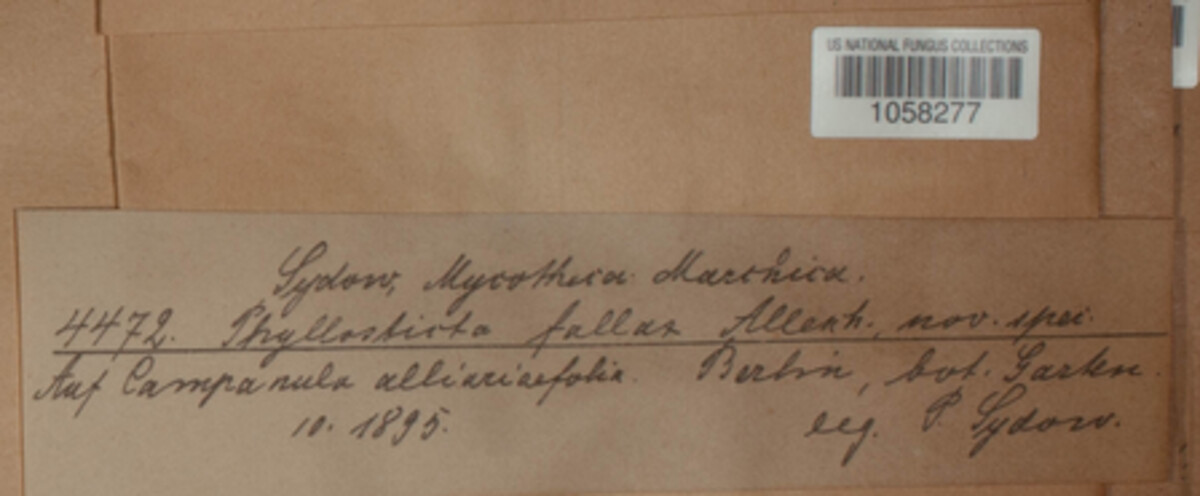 US NATIONAL FUNGUS COLLECTIONS
1058277
Sydow, Mycotheca Marchica.
4472. Phyllosticta fallax Allesh., nov. spec.
Auf Campanula alliariaefolia. Berlin, bot. Garten.
10. 1895. leg. P. Sydow.